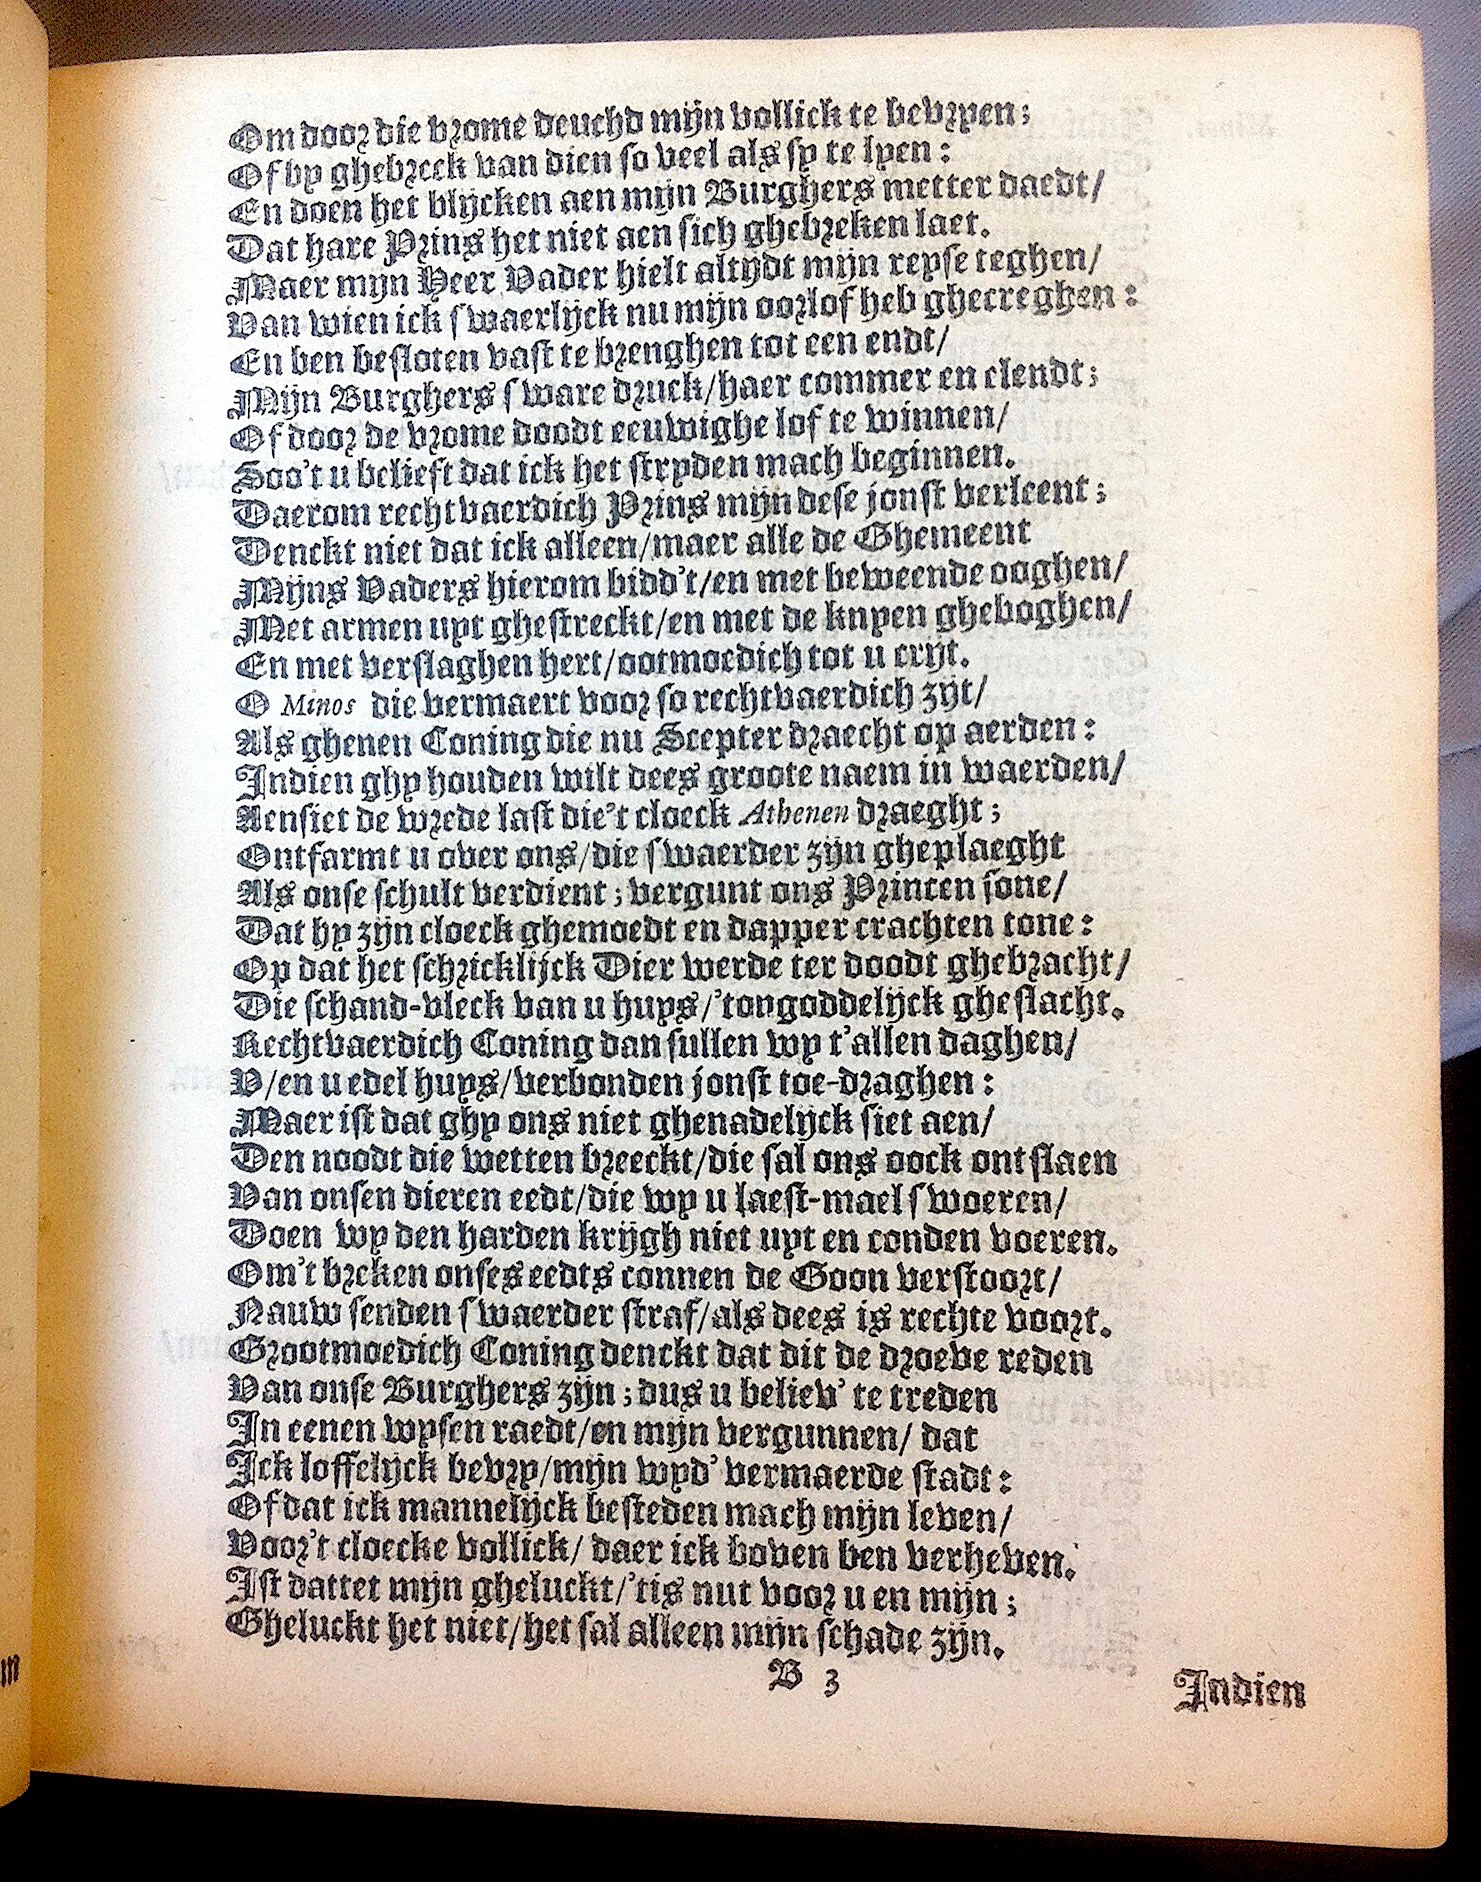 Om door die vrome deuchd mijn vollick te bevryen;
Of by ghebreck van dien so veel als sy te lyen:
En doen het blijcken aen mijn Burghers metter daedt/
Dat hare Prins het niet aen sich ghebreken laet.
Maer mijn Heer Vader hielt altijdt mijn reyse teghen/
Van wien ick swaerlijck nu mijn oorlof heb ghecreghen:
En ben besloten vast te brenghen tot een endt/
Mijn Burghers sware druck/haer commer en elendt;
Of door de vrome doodt eeuwighe lof te winnen/
Soo't u belieft dat ick het stryden mach beginnen.
Daerom rechtvaerdich Prins mijn dese jonst verleent;
Denckt niet dat ick alleen/maer alle de Ghemeent
Mijns Vaders hierom bidd't/en met beweende ooghen/
Met armen uyt ghestreckt/en met de knyen gheboghen/
En met verslaghen hert/ootmoedich tot u crijt.
O Minos die vermaert voor so rechtvaerdich zijt/
Als ghenen Coning die nu Scepter draecht op aerden:
Indien ghy houden wilt dees groote naem in waerden/
Aensiet de wrede last die't cloeck Athenen draeght;
Ontfarmt u over ons/die swaerder zijn gheplaeght
Als onse schult verdient; vergunt ons Princen sone/
Dat hy zijn cloeck ghemoedt en dapper crachten tone:
Op dat het schricklijck Dier werde ter doodt ghebracht/
Die schand-vleck van u huys/'tongoddelijck gheslacht.
Rechtvaerdich Coning dan sullen wy t'allen daghen/
V/en u edel huys/verbonden jonst toe-draghen:
Maer ist dat ghy ons niet ghenadelijck siet aen/
Den noodt die wetten breeckt/die sal ons oock ontslaen
Van onsen dieren eedt/die wy u laest-mael swoeren/
Doen wy den harden krijgh niet uyt en conden voeren.
Om't breken onses eedts connen de Goon verstoort/
Nauw senden swaerder straf/als dees is rechte voort.
Grootmoedich Coning denckt dat dit de droeve reden
Van onse Burghers zijn; dus u believ' te treden
In eenen wysen raedt/en mijn vergunnen/ dat
Ick loffelijck bevry/mijn wyd' vermaerde stadt:
Of dat ick mannelijck besteden mach mijn leven/
Voor't cloecke vollick/ daer ick boven ben verheven.
Ist dattet mijn gheluckt/'tis nut voor u en mijn;
Gheluckt het niet/het sal alleen mijn schade zijn.
B 3
Indien